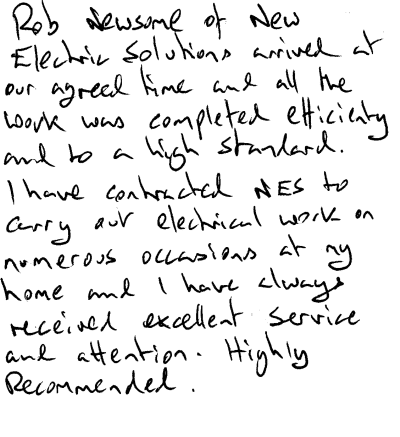 Rob Newsome of New
Electric Solutions arrived at
our agreed time and all the
work was completed efficienty
and to a high standard.
I have contracted NES to
carry out electrical work on
numerous occasions at my
home and I have always
received excellent service
and attention. Highly
Recommended.